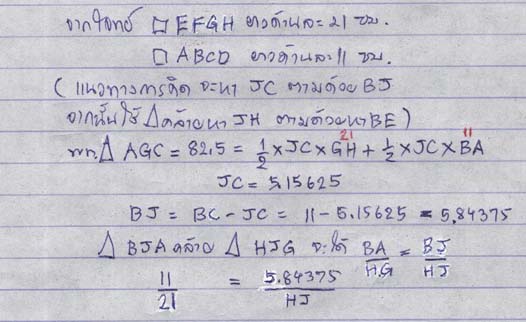 จากโจทย์ □ EFGH ยาวด้านละ 21 ซม.
□ ABCD ยาวด้านละ 11 ซม.
(แนวทางการคิด จะหา JC ตามด้วย BJ
จากนั้นใช้ Δ คล้ายหา JH ตามด้วยหา BE)
พท. Δ AGC = 82.5 = 1/2 × JC × GH + 1/2 × JC × BA
21 11
JC = 5.15625
BJ = BC - JC = 11 - 5.15625 = 5.84375
Δ BJA คล้าย Δ HJG จะได้ BA/HG = BJ/HJ
11/21 = 5.84375/HJ